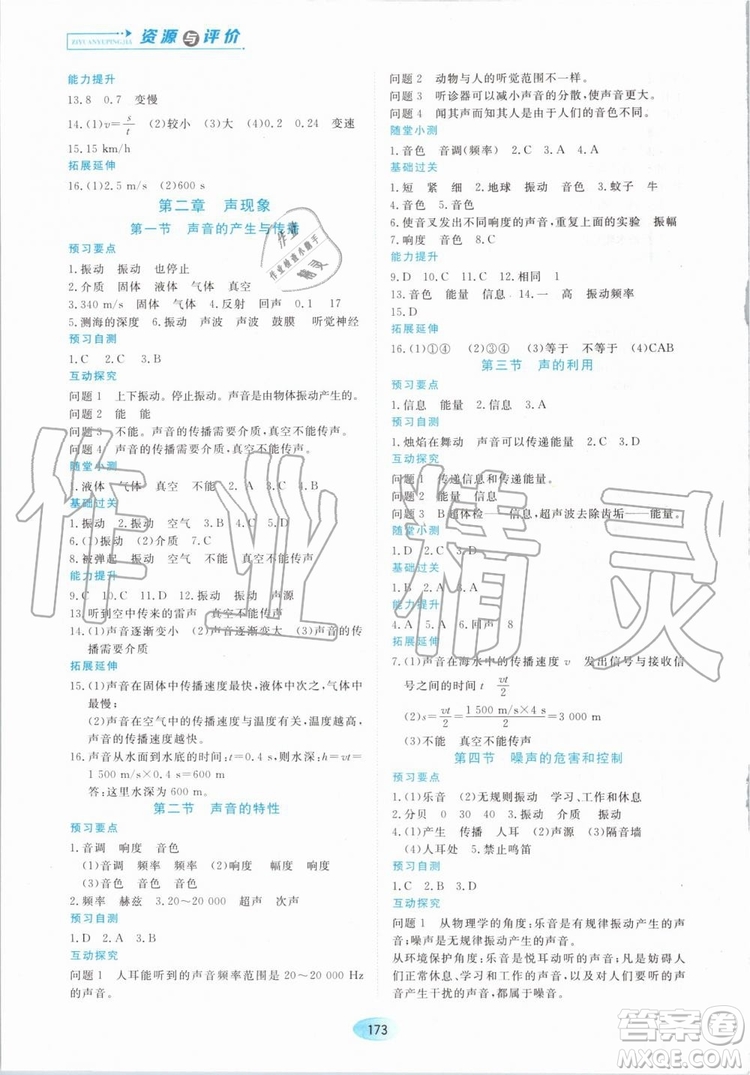 ZIYUANYUPINGJIA 资源与评价
能力提升
13.8 0.7 变慢
14.(1)v=s/t (2)较小 (3)大 (4)0.2 0.24 变速
15.15 km/h
拓展延伸
16.(1)2.5 m/s (2)600 s
第二章 声现象
第一节 声音的产生与传播
预习要点
1.振动 振动 也停止
2.介质 固体 液体 气体 真空
3.340 m/s 固体 气体 4.反射 回声 0.1
5.测海的深度 振动 声波 声波 鼓膜 听觉神经
预习自测
1.C 2.C 3.B
互动探究
问题1 上下振动。停止振动。声音是由物体振动产生的。
问题2 能 能
问题3 不能。声音的传播需要介质,真空不能传声。
问题4 声音的传播需要介质,真空不能传声。
随堂小测
1.液体 气体 2.真空不能传声 3.B 4.D
基础过关
1.振动 2.振动 空气 3.B 4.A 5.C
6.(1)振动 (2)介质 7.真空不能传声
8.被弹起 振动 空气 不能 真空不能传声
能力提升
9.C 10.D 11.D 12.C
13.听到空中传来的雷声 真空不能传声
14.(1)声音逐渐变小 (2)声音逐渐变大 (3)声音的传播需要介质
拓展延伸
15.(1)声音在固体中传播速度最快,液体中次之,气体中最慢;
(2)声音在空气中的传播速度与温度有关,温度越高,声音的传播速度越快。
16.声音从水面到水底的所用时间:t=0.4 s,则水深:h=vt=
1 500 m/s×0.4 s=600 m
答:这里的水深为600 m。
第二节 声音的特性
预习要点
1.音调 响度 音色
(1)音调 频率 频率 (2)响度 幅度 响度
(3)音色
2.频率 赫兹 3.20~20 000 超声 次声
预习自测
1.D 2.A 3.D
互动探究
问题1 人耳能听到的声音频率范围是20~20 000 Hz的声音。
问题2 动物与人的听觉范围不一样。
问题3 听诊器可以减小声音的分散,增大响度。
问题4 闻其声而知其人,每个人发声的音色不同。
随堂小测
1.音色 音调(频率) 2.C 3.D 4.A
基础过关
1.短 紧 细 2.地球 振动 3.音色 4.蚊子 牛
5.D
6.使音叉发出不同响度的声音,重复上面的实验 振幅
7.响度 音色 8.C
能力提升
9.D 10.D 11.B 12.相同 1
13.音色 能量 信息 14.一 高 振动频率
15.C
拓展延伸
16.(1)①④ (2)③④ (3)等于 不等于 (4)CAB
第三节 声的利用
预习要点
1.信息 能量 2.能量 信息 3.A
预习自测
1.烛焰在舞动 声音可以传递能量 2.C 3.D
互动探究
问题1 传递信息和传递能量。
问题2 信息 能量
问题3 B超体检——信息,超声波去除齿垢——能量。
随堂小测
1.D 2.D 3.C 4.D
基础过关
1.B 2.A 3.信息
能力提升
4.A 5.A 6.回声 8
拓展延伸
7.(1)声音在海水中的传播速度v 发出信号与接到回声的时间t vt/2
(2)s=vt/2=1 500 m/s×4 s/2=3 000 m
(3)不能 真空不能传声
第四节 噪声的危害和控制
预习要点
1.(1)乐音 (2)无规则振动 学习、工作和休息
2.分贝 0 30 40 3.振动
4.(1)产生 传播 人耳 (2)声源 (3)隔音墙
(4)人耳处 5.禁止鸣笛
预习自测
1.C 2.B 3.D 4.C
互动探究
问题1 从物理学的角度:乐音是有规律振动产生的声音;噪声是无规律振动产生的声音。
从环境保护的角度:乐音是悦耳动听的声音;妨碍人们正常休息、学习和工作的声音,以及对人们要听的声音产生干扰的声音,都属于噪音。
173
作业精灵
答案圈
MXQE.COM